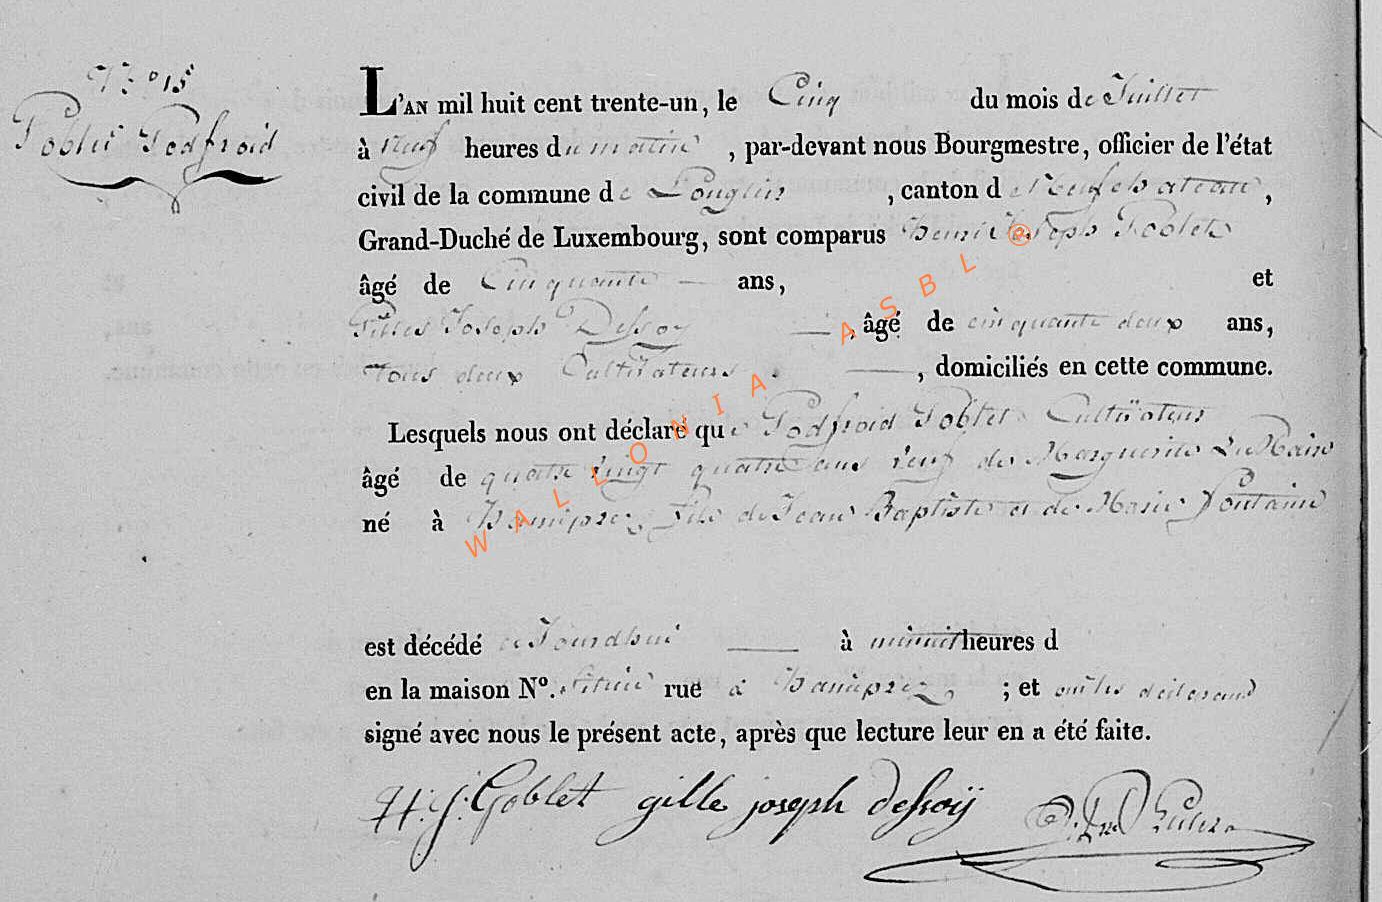 N.º 15
Goblet Godfroid
L'AN mil huit cent trente-un, le Cinq du mois de Juillet
à neuf heures du matin, par-devant nous Bourgmestre, officier de l'état
civil de la commune de Longlier, canton de Neufchateau,
Grand-Duché de Luxembourg, sont comparus Henri Joseph Goblet
âgé de Cinquante — ans, et
Gilles Joseph Dessoy —, âgé de cinquante deux ans,
tous deux Cultivateurs —, domiciliés en cette commune.
Lesquels nous ont déclaré que Godfroid Goblet Cultivateur
âgé de quatre vingt quatre ans veuf de Marguerite LeMaire
né à Hamipré, fils de Jean Baptiste et de Marie Fontaine
est décédé aujourdhui — à minuit heures d
en la maison Nº. située rue à Hamipré, ; et ont les déclarans
signé avec nous le présent acte, après que lecture leur en a été faite.
H. J. Goblet gille joseph dessoÿ
WALLONIA ASBL @